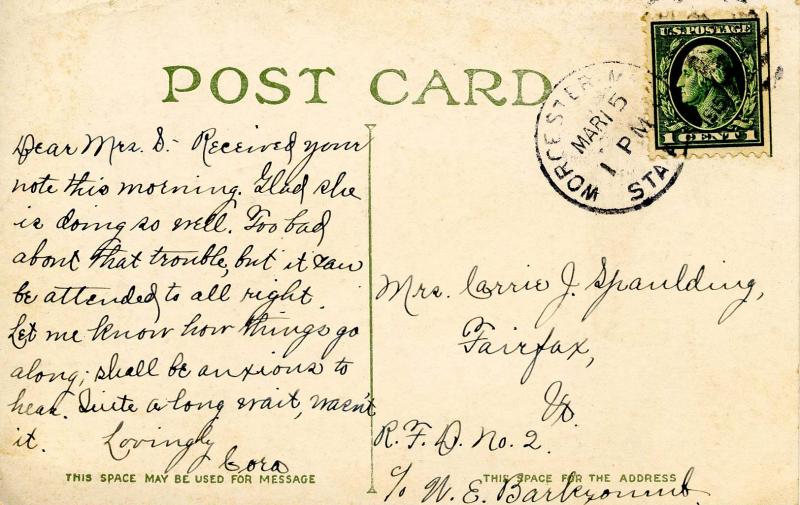 POST CARD
U.S. POSTAGE
1 CENT 1
WORCESTER
MAR 15
1 PM
STA.
Dear Mrs. S:- Received your
note this morning. Glad she
is doing so well. Too bad
about that trouble, but it can
be attended to all right.
Let me know how things go
along; shall be anxious to
hear. Quite a long wait, wasn't
it. Lovingly
Cora
Mrs. Carrie J. Spaulding,
Fairfax,
Vt.
R. F. D. No. 2.
c/o W. E.
THIS SPACE MAY BE USED FOR MESSAGE
THIS SPACE FOR THE ADDRESS